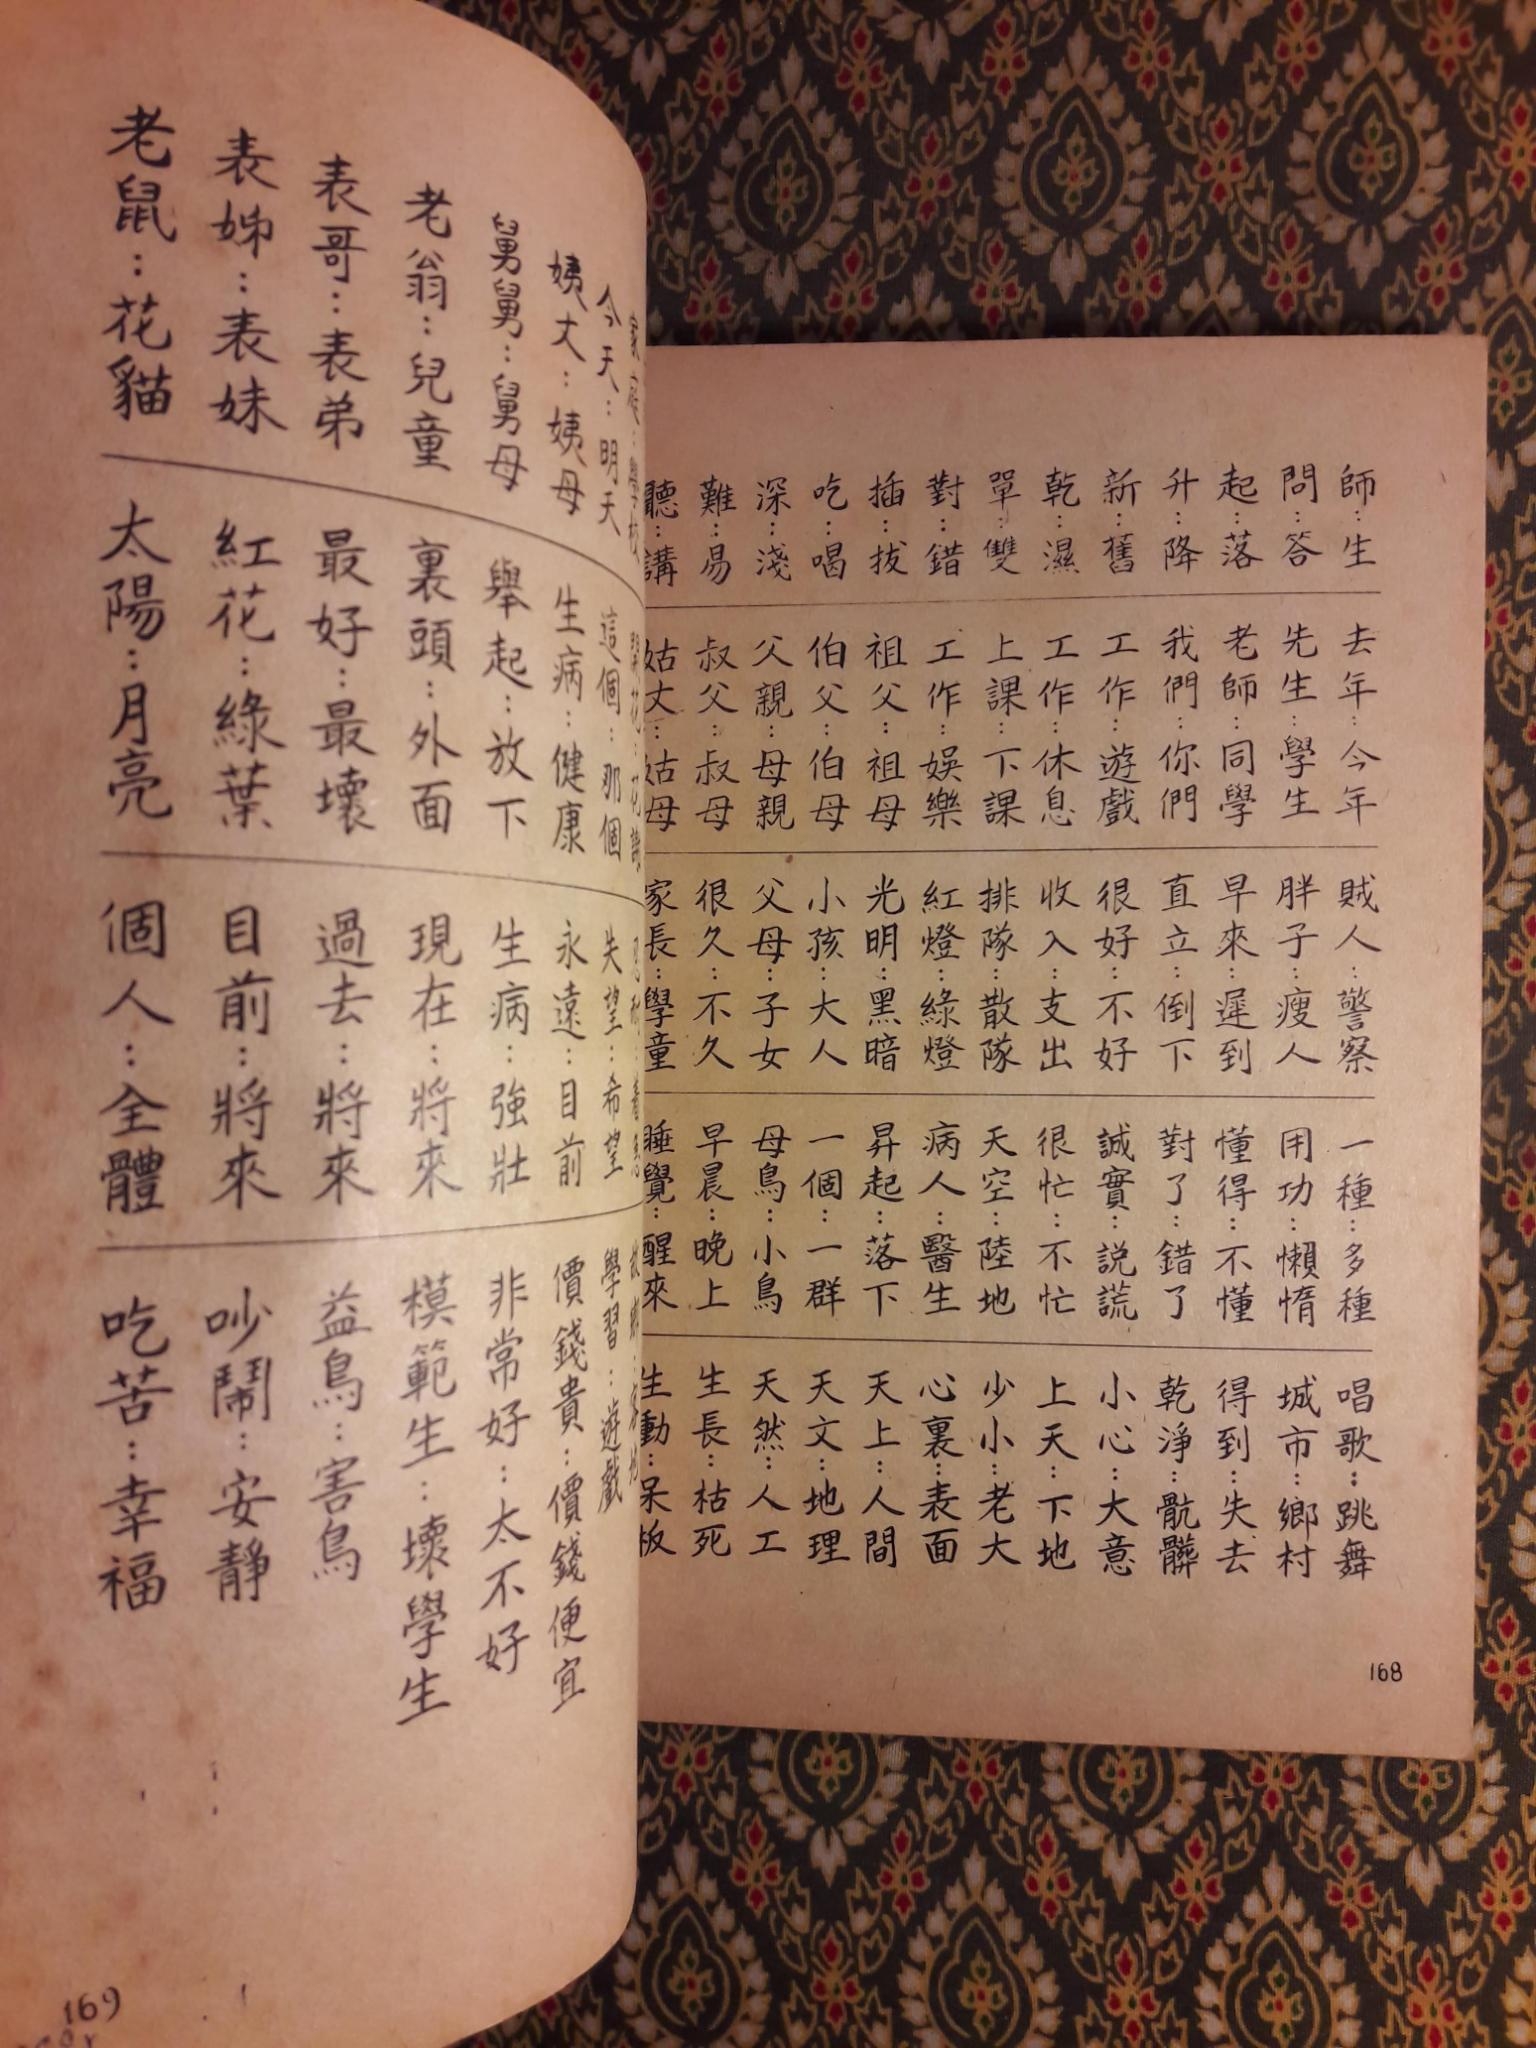 師：生
問：答
起：落
升：降
新：舊
乾：濕
單：雙
對：錯
插：拔
吃：喝
深：淺
難：易
聽：講
去年：今年
先生：學生
老師：同學
我們：你們
工作：遊戲
工作：休息
上課：下課
工作：娛樂
祖父：祖母
伯父：伯母
父親：母親
叔父：叔母
姑丈：姑母
賊人：警察
胖子：瘦人
早來：遲到
直立：倒下
很好：不好
收入：支出
排隊：散隊
紅燈：綠燈
光明：黑暗
小孩：大人
父母：子女
很久：不久
家長：學童
一種：多種
用功：懶惰
懂得：不懂
對了：錯了
誠實：説謊
很忙：不忙
天空：陸地
病人：醫生
昇起：落下
一個：一群
母鳥：小鳥
早晨：晚上
睡覺：醒來
唱歌：跳舞
城市：鄉村
得到：失去
乾淨：骯髒
小心：大意
上天：下地
少小：老大
心裏：表面
天上：人間
天文：地理
天然：人工
生長：枯死
生動：呆板
168
家庭：學校
今天：明天
姨丈：姨母
舅舅：舅母
老翁：兒童
表哥：表弟
表姊：表妹
老鼠：花貓
開花：花謝
這個：那個
生病：健康
舉起：放下
裏頭：外面
最好：最壞
紅花：綠葉
太陽：月亮
失望：希望
永遠：目前
生病：強壯
現在：將來
過去：將來
目前：將來
個人：全體
學習：遊戲
價錢貴：價錢便宜
非常好：太不好
模範生：壞學生
益鳥：害鳥
吵鬧：安靜
吃苦：幸福
169